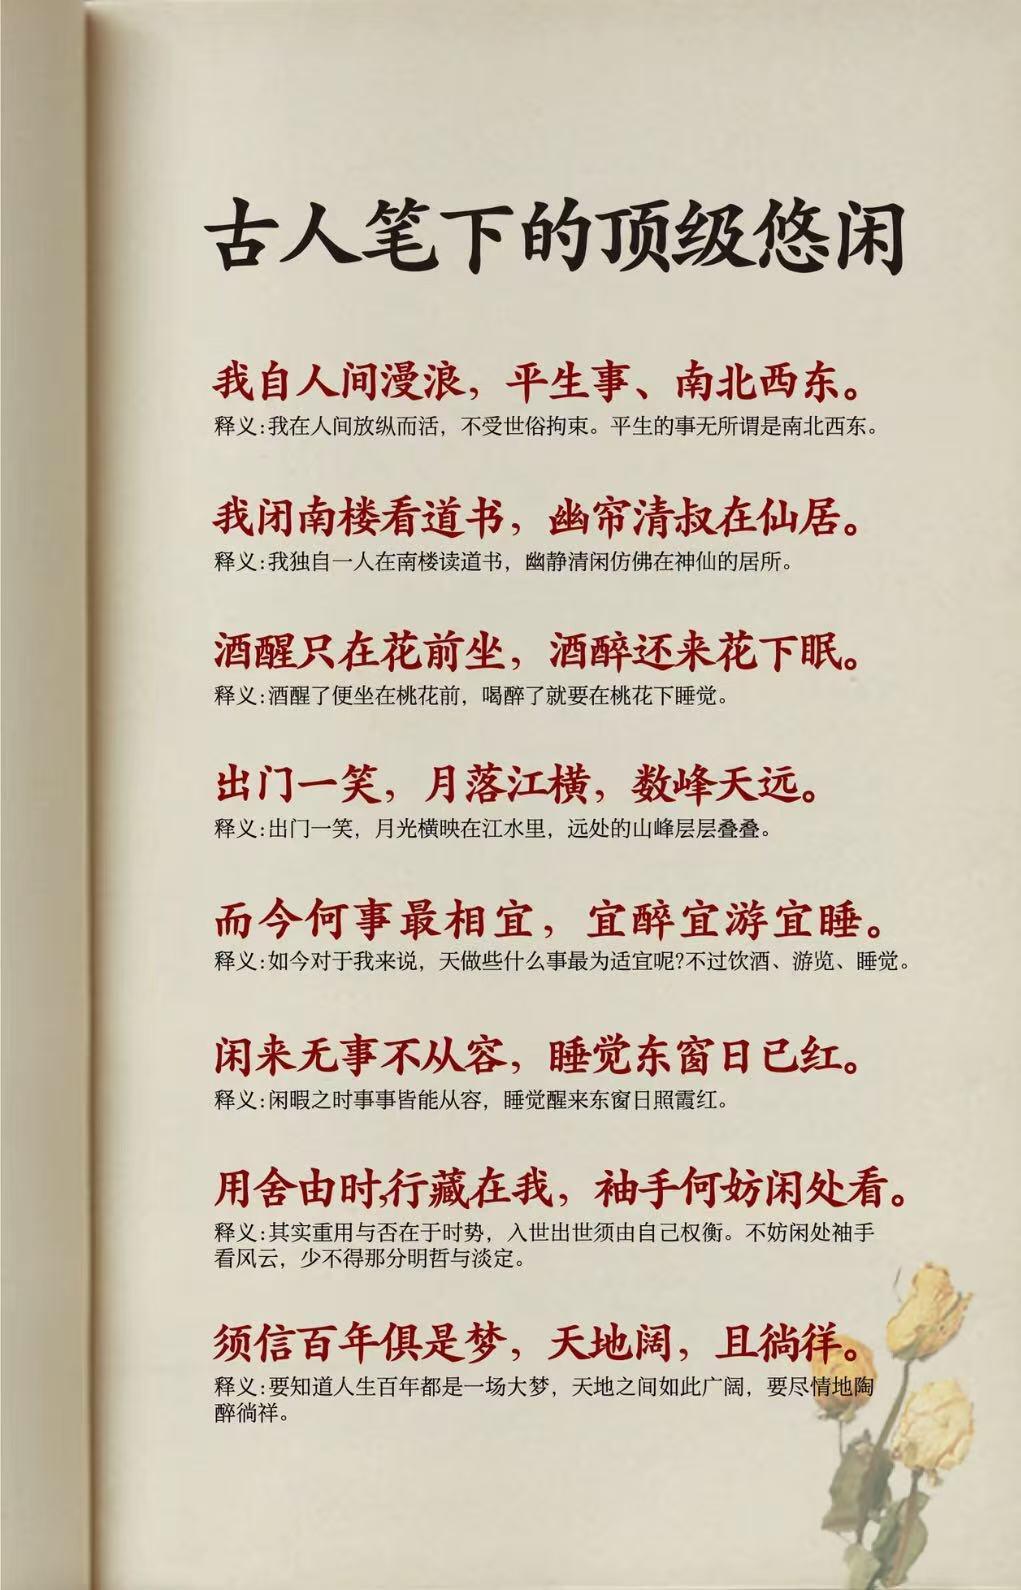 古人笔下的顶级悠闲
我自人间漫浪，平生事、南北西东。
释义:我在人间放纵而活，不受世俗拘束。平生的事无所谓是南北西东。
我闭南楼看道书，幽帘清叔在仙居。
释义:我独自一人在南楼读道书，幽静清闲仿佛在神仙的居所。
酒醒只在花前坐，酒醉还来花下眠。
释义:酒醒了便坐在桃花前，喝醉了就要在桃花下睡觉。
出门一笑，月落江横，数峰天远。
释义:出门一笑，月光横映在江水里，远处的山峰层层叠叠。
而今何事最相宜，宜醉宜游宜睡。
释义:如今对于我来说，天做些什么事最为适宜呢?不过饮酒、游览、睡觉。
闲来无事不从容，睡觉东窗日已红。
释义:闲暇之时事事皆能从容，睡觉醒来东窗日照霞红。
用舍由时,行藏在我，袖手何妨闲处看。
释义:其实重用与否在于时势，入世出世须由自己权衡。不妨闲处袖手
看风云，少不得那分明哲与淡定。
须信百年俱是梦，天地阔，且徜徉。
释义:要知道人生百年都是一场大梦，天地之间如此广阔，要尽情地陶
醉徜祥。